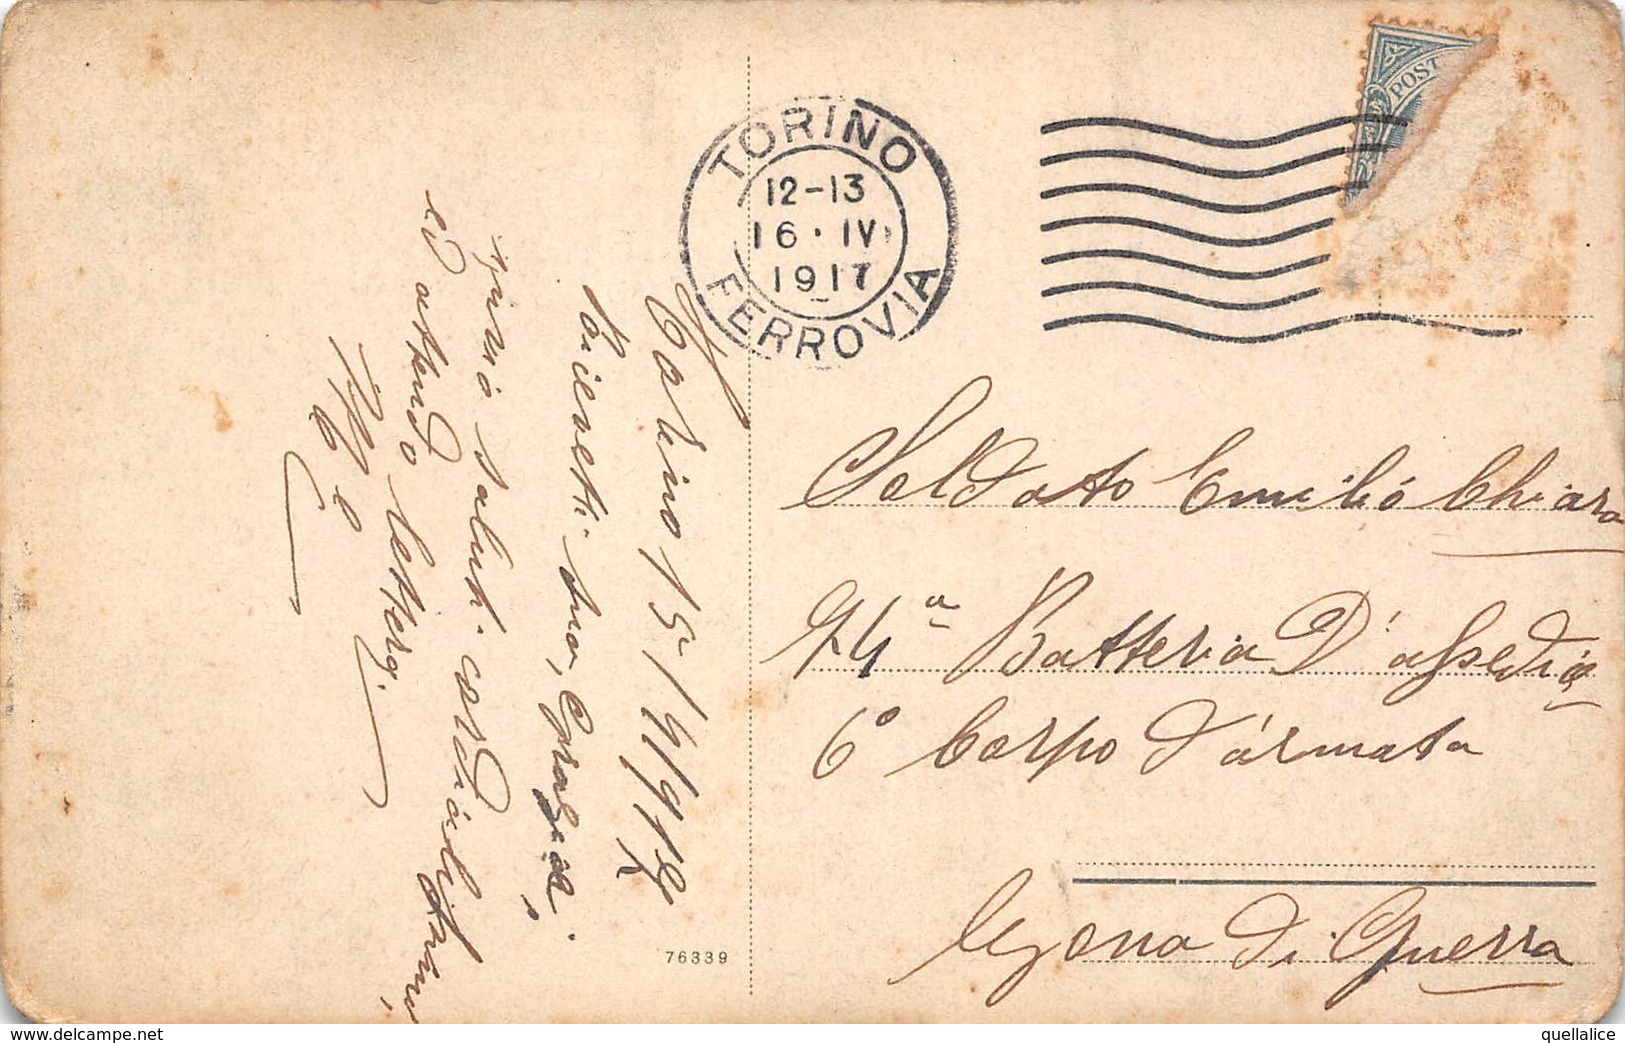 TORINO
12-13
16·IV
1917
FERROVIA
POST
Torino 15/4/1917
Ricevetti tua, Grazie.
Invio saluti cordialissimi
ed attendo lettera.
Soldato Emilio Chiara
74ª Batteria D'assedio
6° Corpo d'armata
Zona di Guerra
76339
www.delcampe.net
quellalice